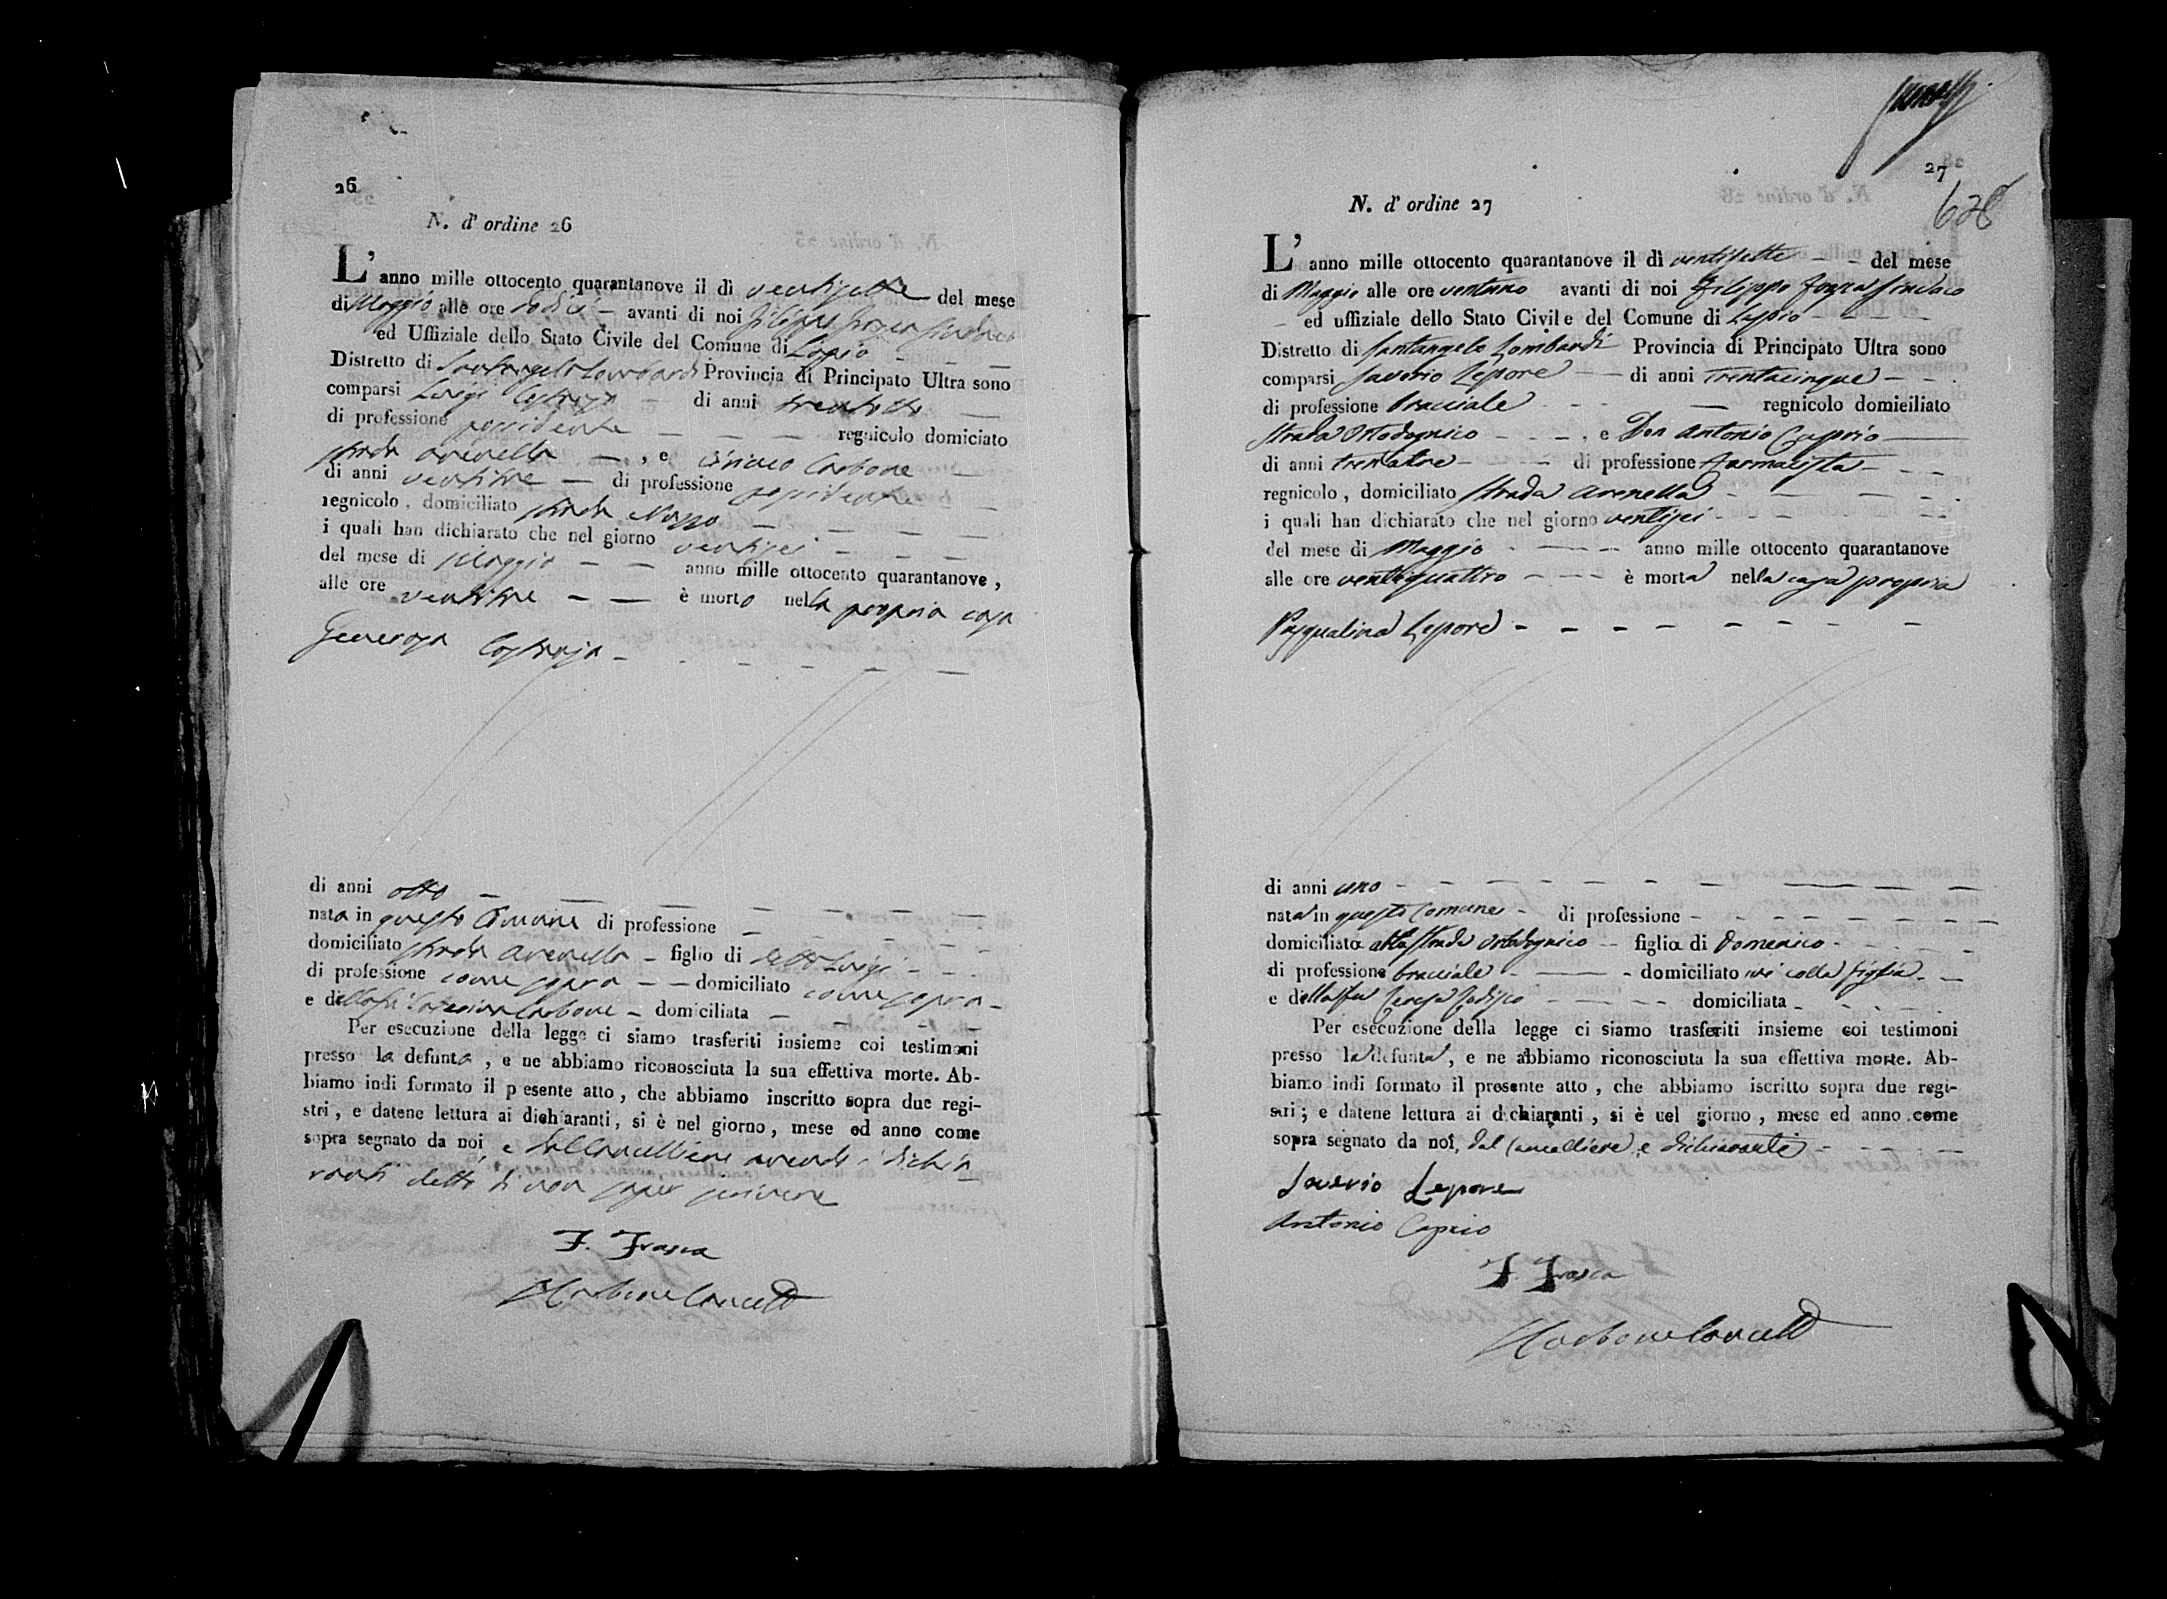 26
N. d' ordine 26
L' anno mille ottocento quarantanove il dì ventisette del mese
di Maggio alle ore dodici avanti di noi Filippo Frasca Sindaco
ed Uffiziale dello Stato Civile del Comune di Lapio
Distretto di Santangelo Lombardi Provincia di Principato Ultra sono
comparsi Luigi di anni trentotto
di professione possidente regnicolo domiciato
strada arenella , e Ciriaco Carbone
di anni ventitre di professione possidente
regnicolo , domiciliato strada
i quali han dichiarato che nel giorno ventisei
del mese di Maggio anno mille ottocento quarantanove ,
alle ore ventitre è morto nella propria casa
Generosa
di anni otto
nata in questo Comune di professione
domiciliato strada arenella figlio di detto Luigi
di professione come sopra domiciliato come sopra
e della fu Carbone domiciliata
Per esecuzione della legge ci siamo trasferiti insieme coi testimoni
presso la defunta , e ne abbiamo riconosciuta la sua effettiva morte. Ab-
biamo indi formato il p esente atto , che abbiamo inscritto sopra due regi-
stri , e datene lettura ai dichiaranti , si è nel giorno , mese ed anno come
sopra segnato da noi, e dal Cancelliere avendo i dichia
ranti detto di non saper scrivere
F. Frasca
Carbone Cancell
27
628
N. d' ordine 27
L' anno mille ottocento quarantanove il dì ventisette del mese
di Maggio alle ore ventuno avanti di noi Filippo Frasca Sindaco
ed uffiziale dello Stato Civile del Comune di Lapio
Distretto di Santangelo Lombardi Provincia di Principato Ultra sono
comparsi Saverio Lepore di anni trentacinque
di professione bracciale regnicolo domieiliato
strada Ortodognico , e Don Antonio Caprio
di anni trentatre di professione farmacista
regnicolo , domiciliato strada arenella
i quali han dichiarato che nel giorno ventisei
del mese di Maggio anno mille ottocento quarantanove
alle ore ventiquattro è morta nella casa propria
Pasqualina Lepore
di anni uno
nata in questo Comune di professione
domiciliata alla strada Ortodognico figlia di Domenico
di professione bracciale domiciliato ivi colla figlia
e della fu Teresa domiciliata
Per esecuzione della legge ci siamo trasferiti insieme coi testimoni
presso la defunta , e ne abbiamo riconosciuta la sua effettiva morte. Ab-
biamo indi formato il presente atto , che abbiamo iscritto sopra due regi-
stri ; e datene lettura ai dichiaranti , si è nel giorno , mese ed anno come
sopra segnato da noi, dal Cancelliere, e dichiaranti
Saverio Lepore
Antonio Caprio
F. Frasca
Carbone Cancell